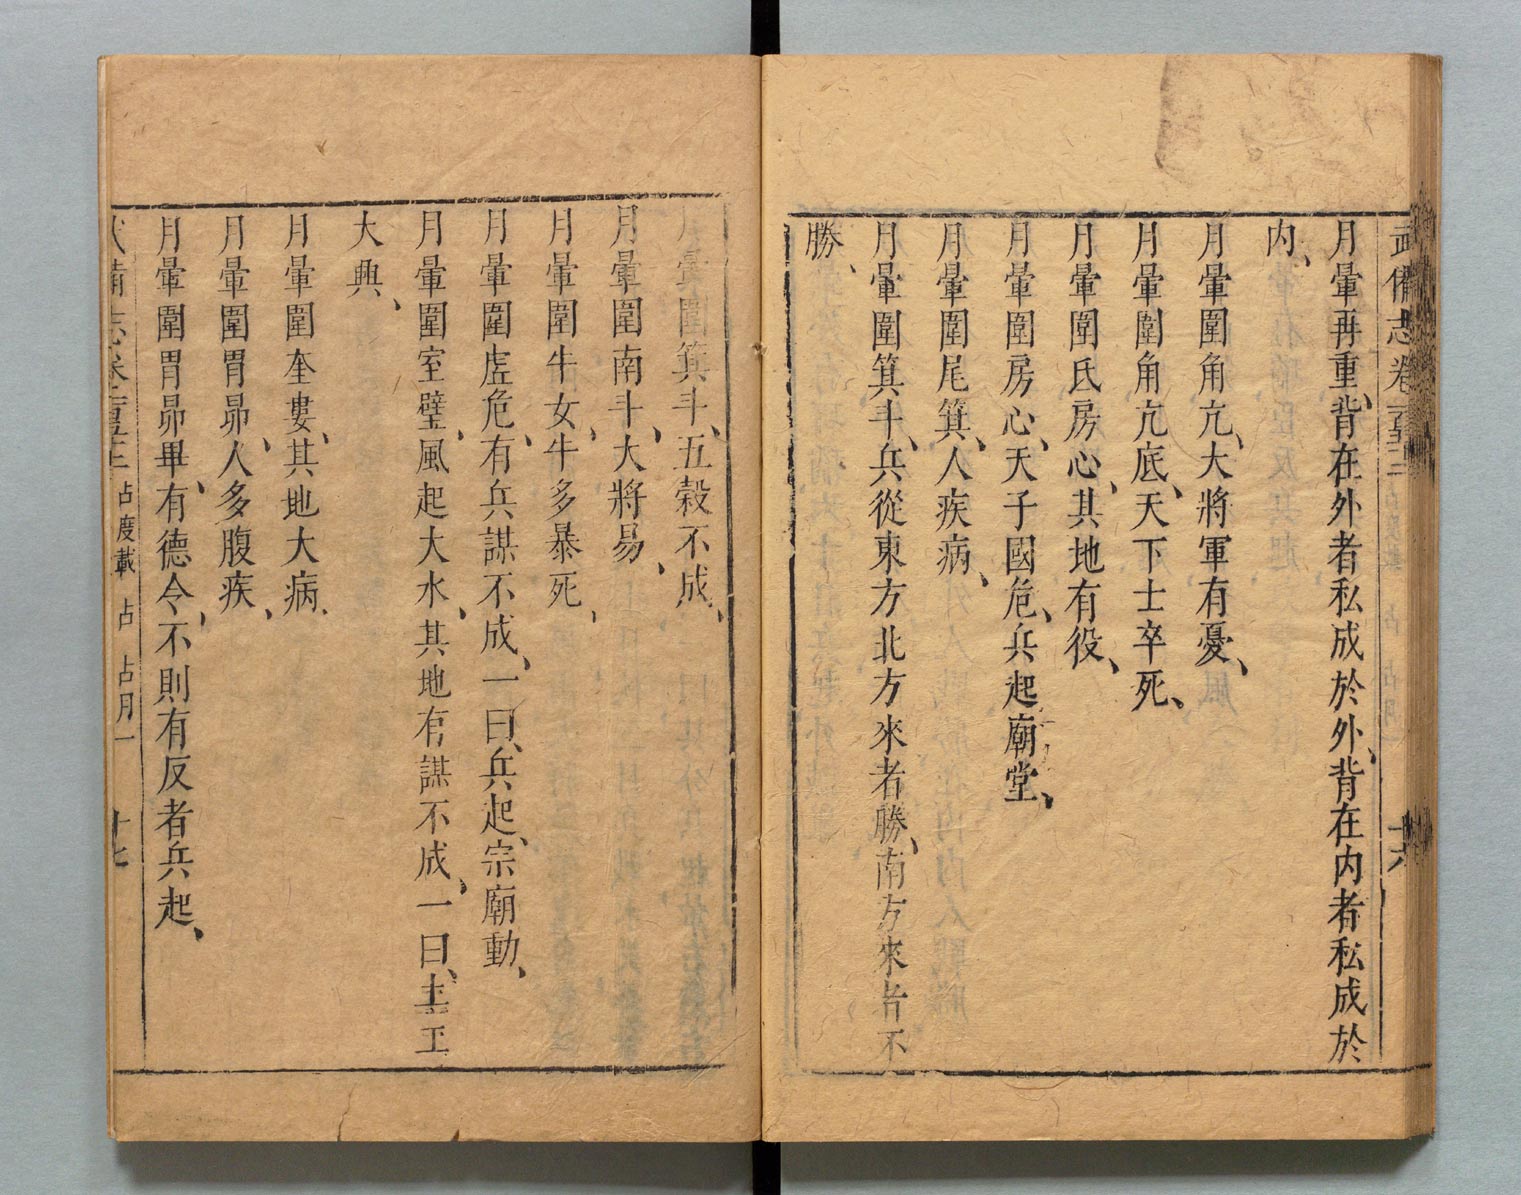 武備志卷一百五十二
十六
月暈再重、背在外者私成於外、背在内者私成於
内、
月暈圍角亢、大將軍有憂、
月暈圍角亢底、天下士卒死、
月暈圍氐房心、其地有役、
月暈圍房心、天子國危、兵起廟堂、
月暈圍尾箕、人疾病、
月暈圍箕斗、兵從東方北方來者勝、南方來者不
勝、
月暈圍箕斗、五榖不成、
月暈圍南斗、大將易、
月暈圍牛女、牛多暴死、
月暈圍虛危、有兵謀不成、一曰、兵起、宗廟動、
月暈圍室壁、風起大水、其地有謀不成、一曰、土工
大興、
月暈圍奎婁、其地大病、
月暈圍胃昴、人多腹疾、
月暈圍胃昴畢、有德令、不則有反者兵起、
武備志卷 占度載 占 占月一 十七